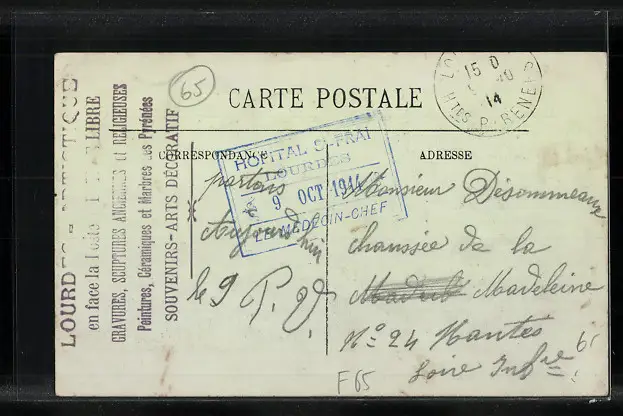 65
LOURDES - ARTISTIQUE
en face la Poste LIBRE
GRAVURES, SCUPTURES ANCIENNES et RELIGIEUSES
Peintures, Céramiques et Marbres des Pyrénées
SOUVENIRS-ARTS DÉCORATIF
CARTE POSTALE
CORRESPONDANCE
ADRESSE
15 10
14
Htes PYRENEES
HOPITAL St-FRAI
LOURDES
9 OCT 1914
LE MEDECIN-CHEF
partons
Aujourd'hui
le 9 P. V.
Monsieur Désormeaux
chaussée de la
Madeleine
No 24 Nantes
Loire Infre
F65